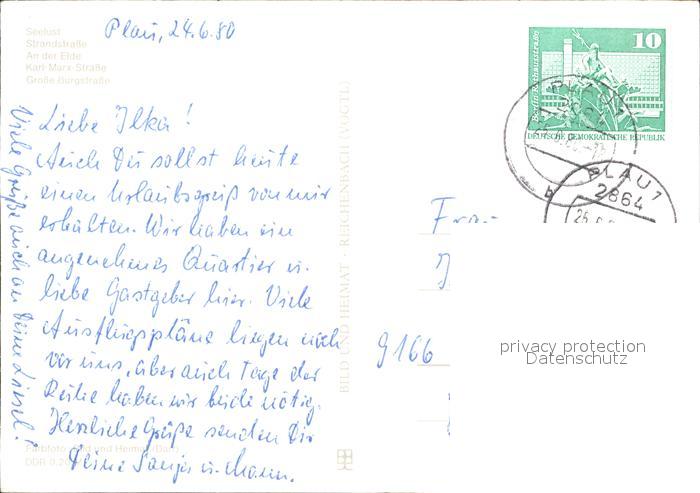 Seelust
Strandstraße
An der Elde
Karl-Marx-Straße
Große Burgstraße
Plau, 24.6.80
Liebe Ilka!
Auch Du sollst heute
einen Urlaubsgruß von mir
erhalten. Wir haben ein
angenehmes Quartier u.
liebe Gastgeber hier. Viele
Ausflugspläne liegen noch
vor uns, aber auch Tage der
Ruhe haben wir beide nötig.
Herzliche Grüße senden Dir
Deine Sanja u. Mann.
Viele Grüße auch an Deine Liesel!
Farbfoto: Bild und Heimat
DDR 0,20
BILD UND HEIMAT · REICHENBACH (VOGTL)
10
Berlin, Rathausstraße
DEUTSCHE DEMOKRATISCHE REPUBLIK
PLAU 1
PLAU 1
2864
Frau
9166
privacy protection
Datenschutz